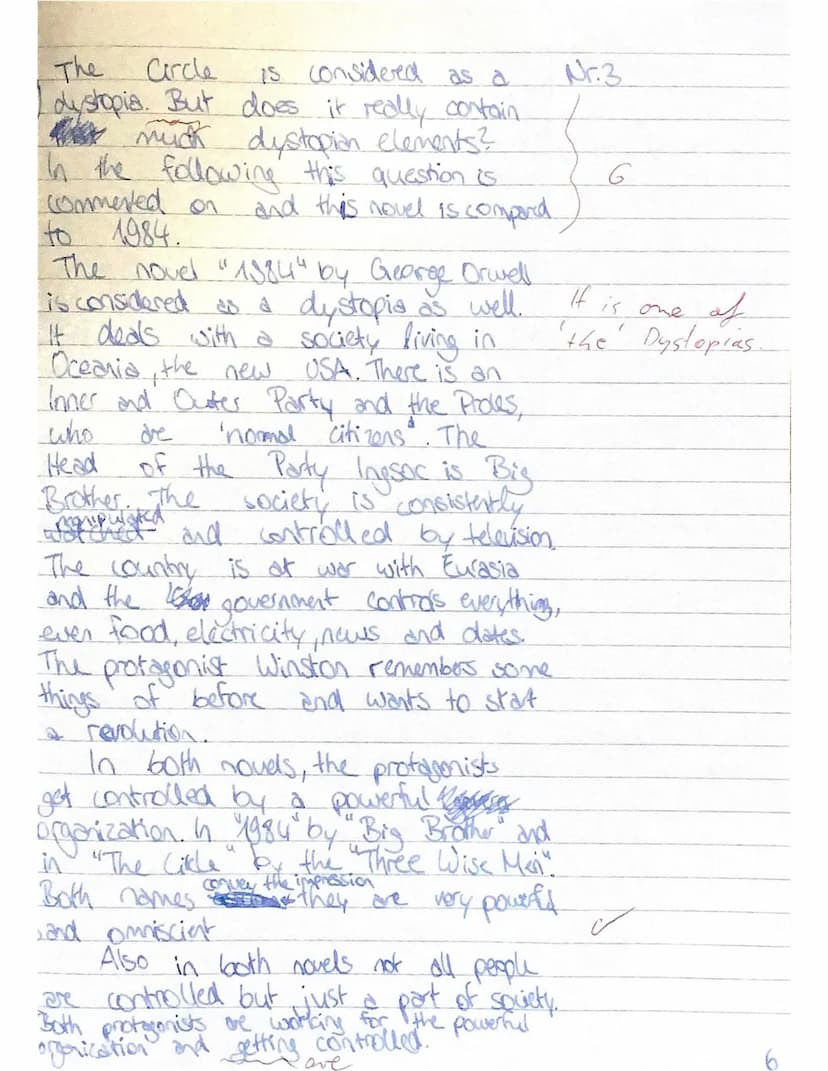 The Circle is considered as a Nr.3
dystopia. But does it really contain
much dystopian elements?
In the following this question is G
commented on and this novel is compard
to 1984.
The novel "1984" by George Orwell
is considered as a dystopia as well. It is one of
It deals with a society living in 'the' Dystopias.
Oceania, the new USA. There is an
Inner and Outer Party and the Proles,
who are 'normal citizens'. The
Head of the Party Ingsoc is Big
Brother. The society is consistently
manipulated
watched and controlled by television.
The country is at war with Eurasia
and the government controls everything,
even food, electricity, news and dates.
The protagonist Winston remembers some
things of before and wants to start
a revolution.
In both novels, the protagonists
get controlled by a powerful
organization. In "1984" by "Big Brother" and
in "The Cirlce" by the "Three Wise Men".
convey the impression
Both names they are very powerful
and omniscient
Also in both novels not all people
are controlled but just a part of society.
Both protagonists are working for the powerful
organication and getting controlled.
are
6